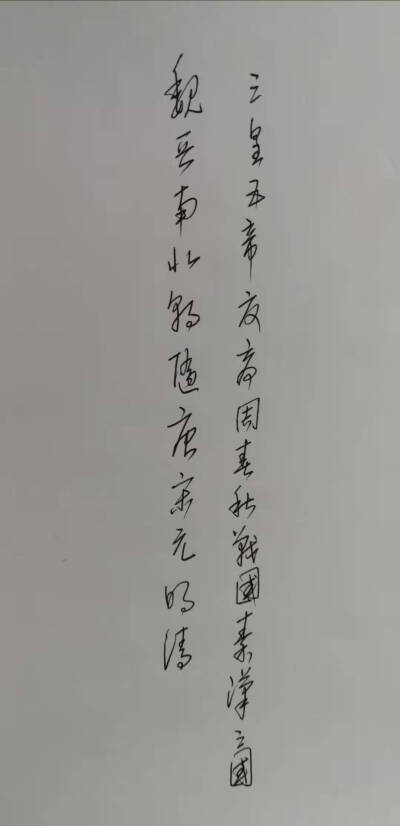 三皇五帝夏商周春秋戰國秦漢三國
魏晉南北朝隨唐宋元明清